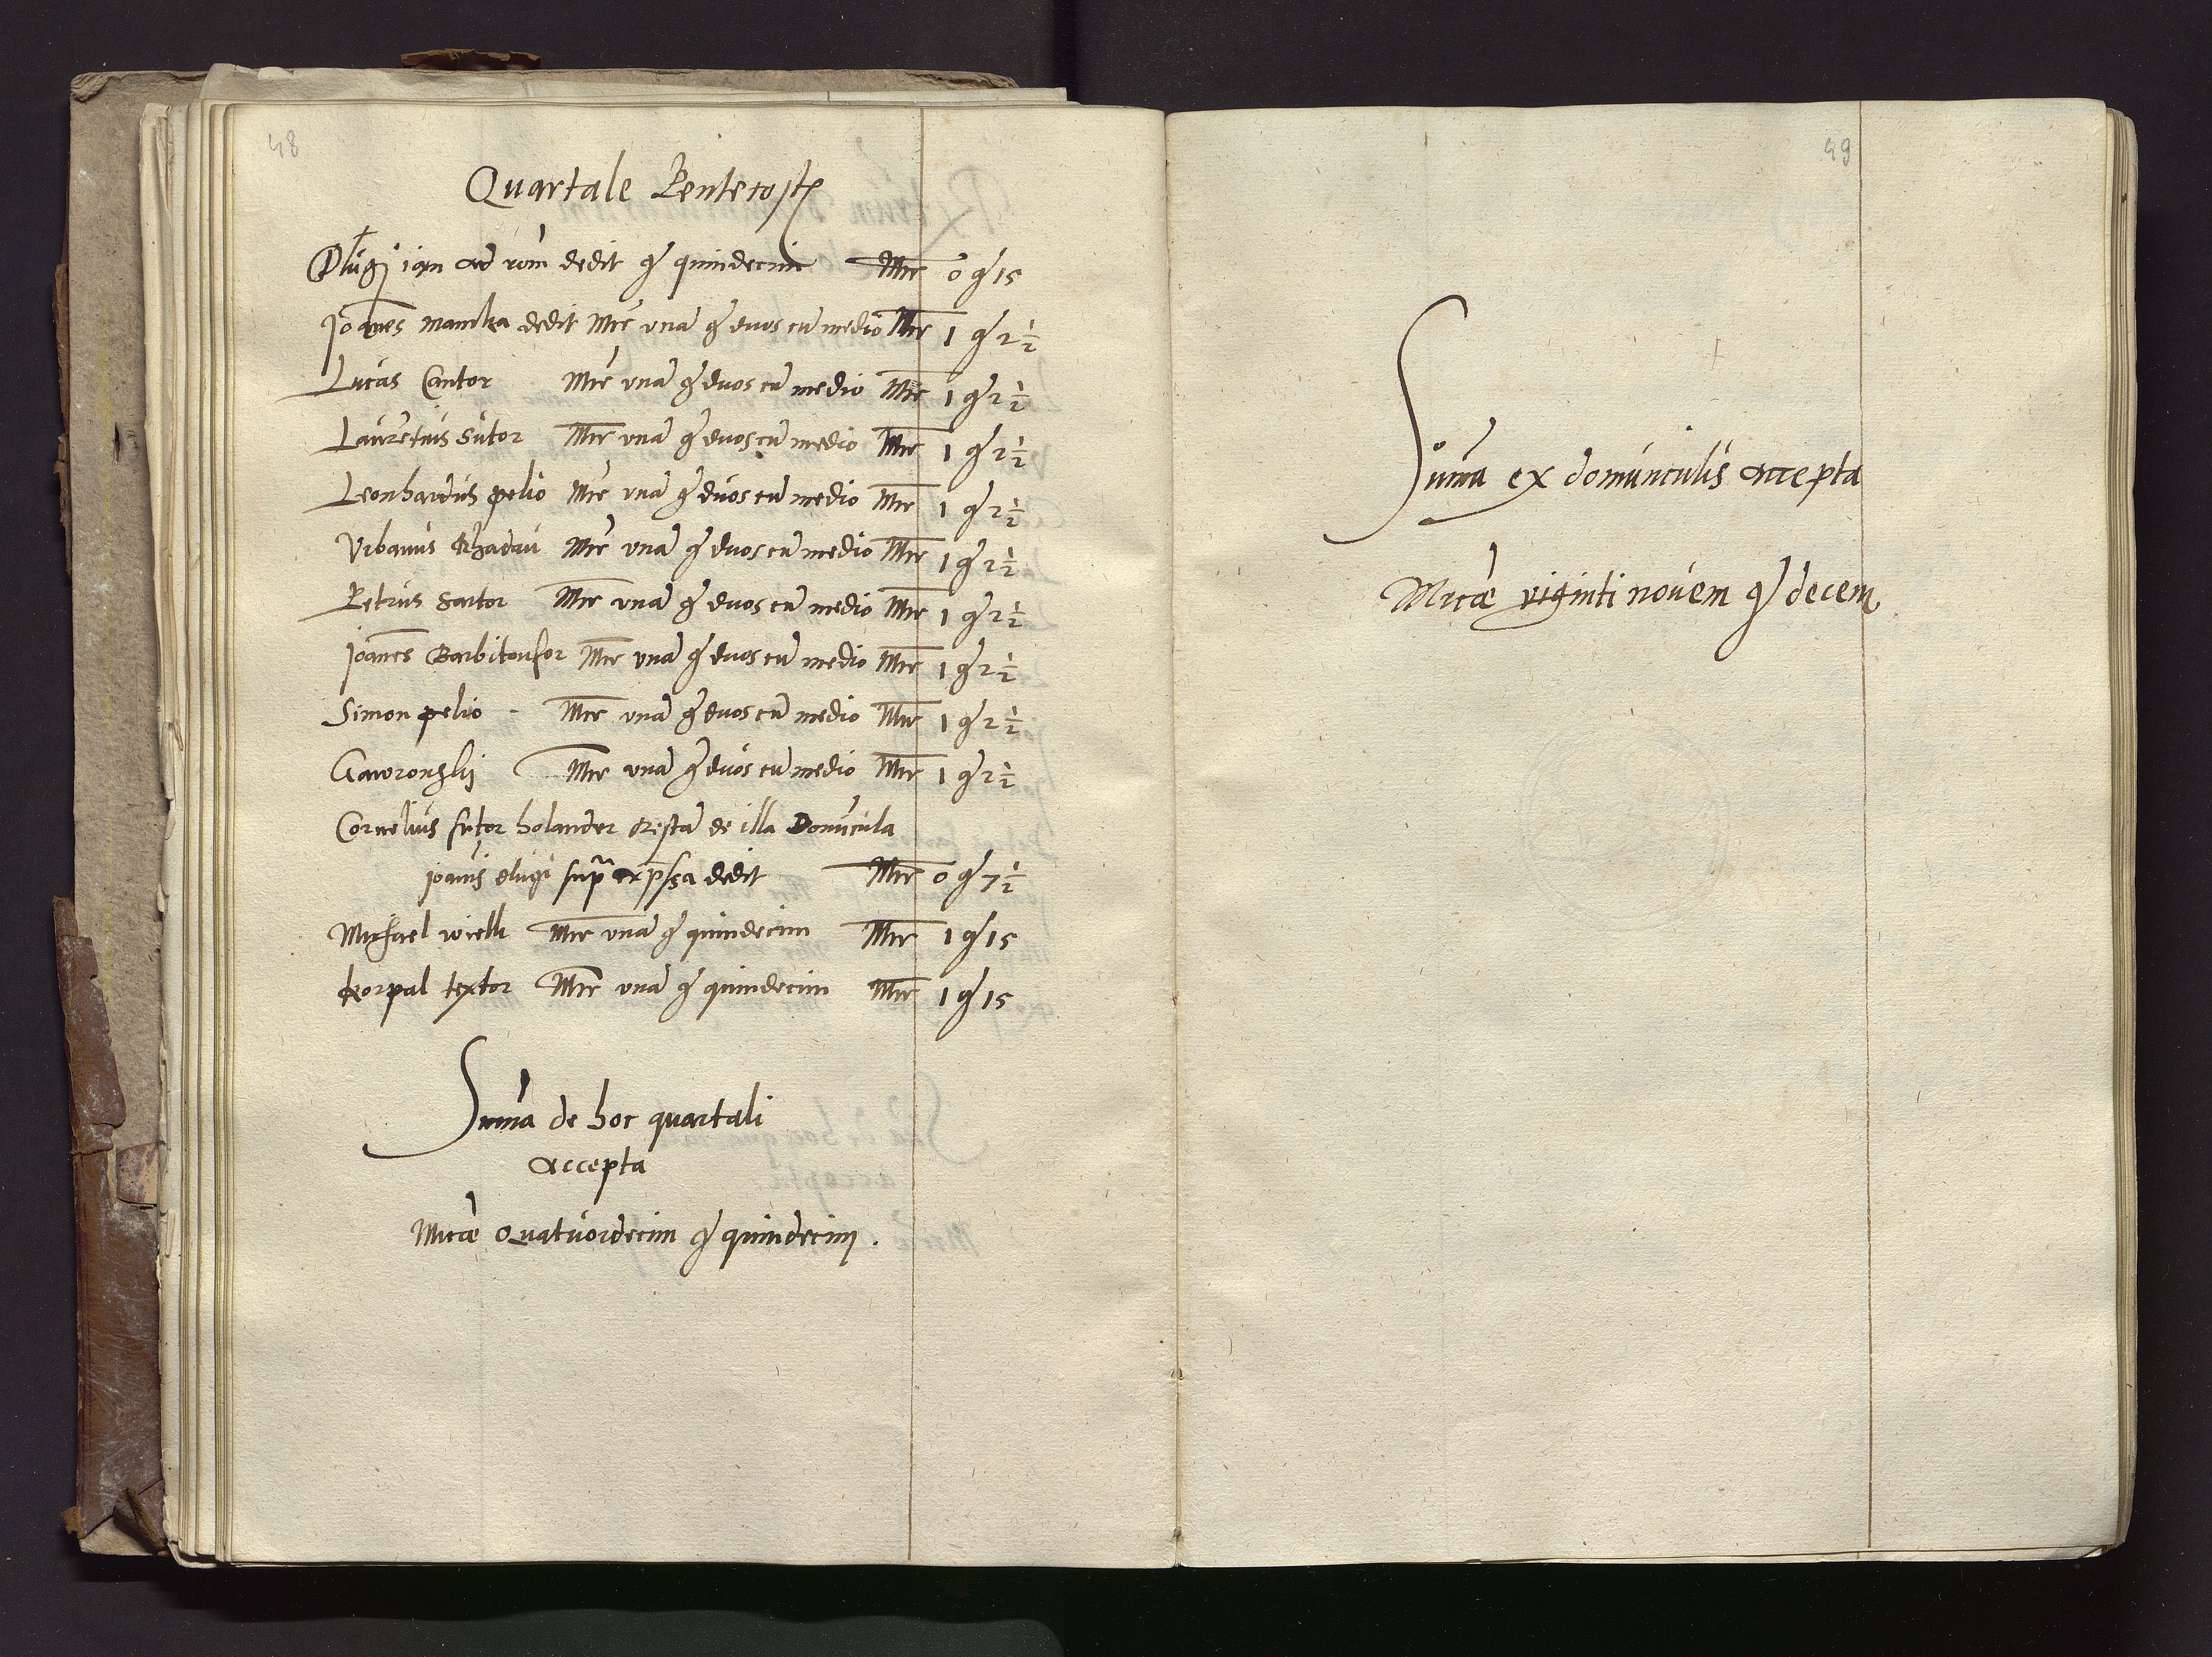 48
Quartale Pentecost
Dlugi ian ad rōm dedit gͬ quindecim Mrc 0 gͬ 15
Joānes mancka dedit Mrc vnā gͬ duos cū medio Mrc 1 gͬ 2 1/2
Lucas Cantor Mrc vnā gͬ duos cū medio Mrc 1 gͬ 2 1/2
Laurētius Sutor Mrc vnā gͬ duos cū medio Mrc 1 gͬ 2 1/2
Leonhardus pelio Mrc vnā gͬ duos cū medio Mrc 1 gͬ 2 1/2
Vrbanus Mrc vnā gͬ duos cū medio Mrc 1 gͬ 2 1/2
Petrus Sartor Mrc vnā gͬ duos cū medio Mrc 1 gͬ 2 1/2
Joānes Barbitonsor Mrc vnā gͬ duos cū medio Mrc 1 gͬ 2 1/2
Simon pelio - Mrc vnā gͬ duos cū medio Mrc 1 gͬ 2 1/2
Gawronskij Mrc vnā gͬ duos cū medio Mrc 1 gͬ 2 1/2
Cornelius sutor holander restā de illa Domūcula
joānis dlugi dedit Mrc 0 gͬ 7 1/2
Michael wielk Mrc vnā gͬ quindecim Mrc 1 gͬ 15
korpal textor Mrc vnā gͬ quindecim Mrc 1 gͬ 15
Sum̄a de hoc quartali
accepta
Mrcæ Quatuordecim gͬ quindecim.
49
Sum̄a ex domunculis accepta
Mrcæ viginti novem gͬ decem